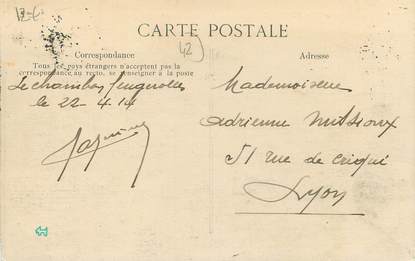 12-6
CARTE POSTALE
42
Correspondance
Tous les pays étrangers n'acceptent pas la
correspondance au recto. se renseigner à la poste
Le chambon feugerolles
le 22.4.14
Adresse
Mademoiselle
Adrienne
51 rue de créqui
Lyon